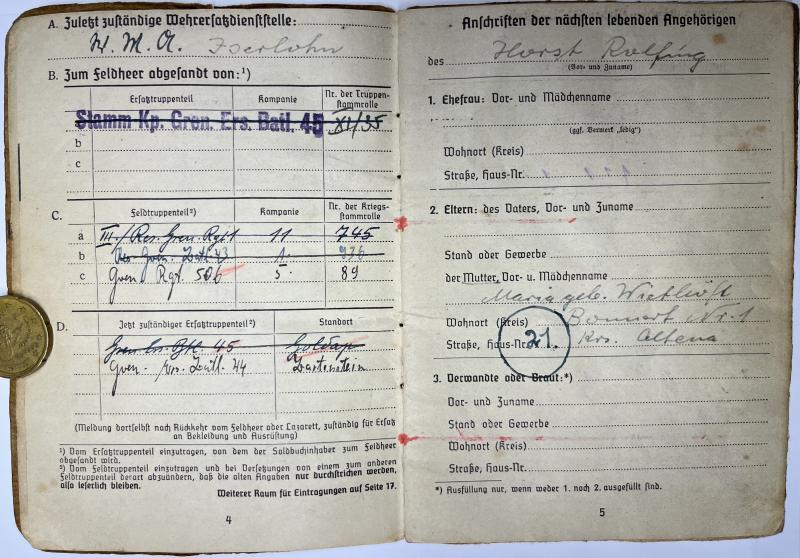 A. Zuletzt zuständige Wehrersatzdienststelle:
W. M. A. Iserlohn
B. Zum Feldheer abgesandt von:¹)
Ersatztruppenteil Kompanie Nr. der Truppen-
stammrolle
Stamm Kp. Gren. Ers. Batl. 45 XI/35
b
c
C. Feldtruppenteil²) Kompanie Nr. der Kriegs-
stammrolle
a III./Res. Gren. Rgt 1 11 745
b Res. Gren. Batl. 43 1. 936
c Gren Rgt. 506 5 89
D. Jetzt zuständiger Ersatztruppenteil²) Standort
Gren. Ers. Btl. 45 Goldap
Gren. Ers. Batl. 44 Bartenstein
(Meldung dortselbst nach Rückkehr vom Feldheer oder Lazarett, zuständig für Ersatz
an Bekleidung und Ausrüstung)
¹) Vom Ersatztruppenteil einzutragen, von dem der Soldbuchinhaber zum Feldheer
abgesandt wird.
²) Vom Feldtruppenteil einzutragen und bei Versetzungen von einem zum anderen
Feldtruppenteil derart abzuändern, daß die alten Angaben nur durchstrichen werden,
also leserlich bleiben.
Weiterer Raum für Eintragungen auf Seite 17.
4
Anschriften der nächsten lebenden Angehörigen
des Horst Rolfing
(Vor- und Zuname)
1. Ehefrau: Vor- und Mädchenname
(ggf. Vermerk „ledig“)
Wohnort (Kreis)
Straße, Haus-Nr.
2. Eltern: des Vaters, Vor- und Zuname
Stand oder Gewerbe
der Mutter, Vor- u. Mädchenname
Maria geb.
Wohnort (Kreis) Nr. 1
Straße, Haus-Nr. 21. Krs. Altena
3. Verwandte oder Braut:*)
Vor- und Zuname
Stand oder Gewerbe
Wohnort (Kreis)
Straße, Haus-Nr.
*) Ausfüllung nur, wenn weder 1. noch 2. ausgefüllt sind.
5